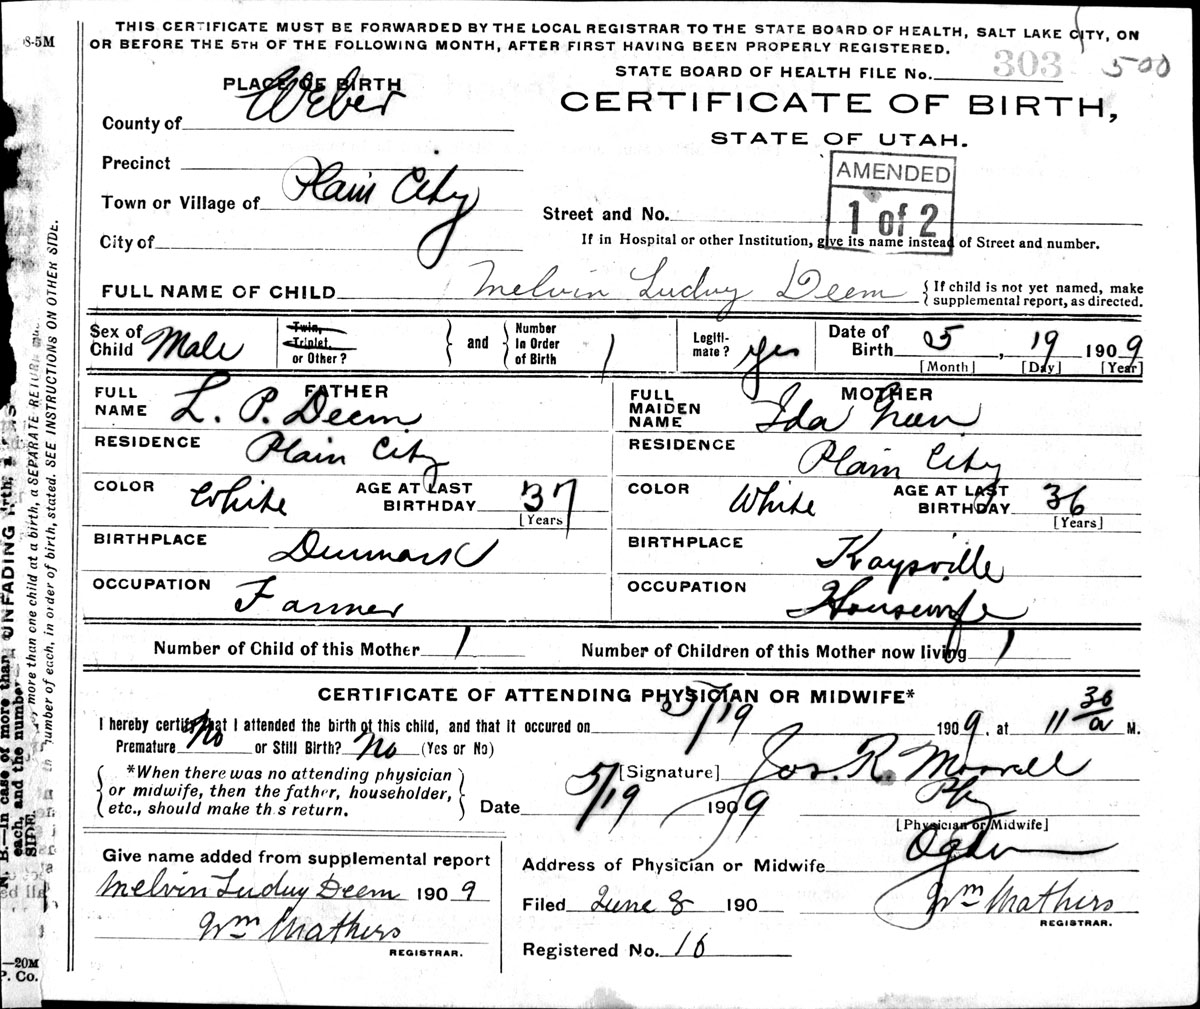 THIS CERTIFICATE MUST BE FORWARDED BY THE LOCAL REGISTRAR TO THE STATE BOARD OF HEALTH, SALT LAKE CITY, ON
OR BEFORE THE 5TH OF THE FOLLOWING MONTH, AFTER FIRST HAVING BEEN PROPERLY REGISTERED.
8-5M
STATE BOARD OF HEALTH FILE No. 303 500
PLACE OF BIRTH
CERTIFICATE OF BIRTH,
STATE OF UTAH.
County of Weber
Precinct
AMENDED
1 of 2
Town or Village of Plain City
Street and No.
City of
If in Hospital or other Institution, give its name instead of Street and number.
FULL NAME OF CHILD Melvin Ludvy Deem { If child is not yet named, make
supplemental report, as directed.
Sex of Child Male
Twin, Triplet, or Other? } and { Number in Order of Birth 1
Legiti-mate? yes
Date of Birth 5, 19 1909
[Month] [Day] [Year]
FATHER
FULL NAME L. P. Deem
MOTHER
FULL MAIDEN NAME Ida Green
RESIDENCE Plain City
RESIDENCE Plain City
COLOR White AGE AT LAST BIRTHDAY 37 [Years]
COLOR White AGE AT LAST BIRTHDAY 36 [Years]
BIRTHPLACE Denmark
BIRTHPLACE Kaysville
OCCUPATION Farmer
OCCUPATION Housewife
Number of Child of this Mother 1 Number of Children of this Mother now living 1
CERTIFICATE OF ATTENDING PHYSICIAN OR MIDWIFE*
I hereby certify that I attended the birth of this child, and that it occured on 5/19 1909, at 11 30 a M.
Premature No or Still Birth? No (Yes or No)
*When there was no attending physician
or midwife, then the father, householder,
etc., should make this return.
[Signature] Jos. R. Morrell
Date 5/19 1909 Phy
[Physician or Midwife]
Give name added from supplemental report
Melvin Ludvy Deem 1909
Wm Mathers
REGISTRAR.
Address of Physician or Midwife Ogden
Filed June 8 190 Wm Mathers
REGISTRAR.
Registered No. 16
more than one child at a birth, a SEPARATE RETURN
number of each, in order of birth, stated. SEE INSTRUCTIONS ON OTHER SIDE.
UNFADING
B.—In case of more than
each, and the number
SIDE.
—20M
P. Co.